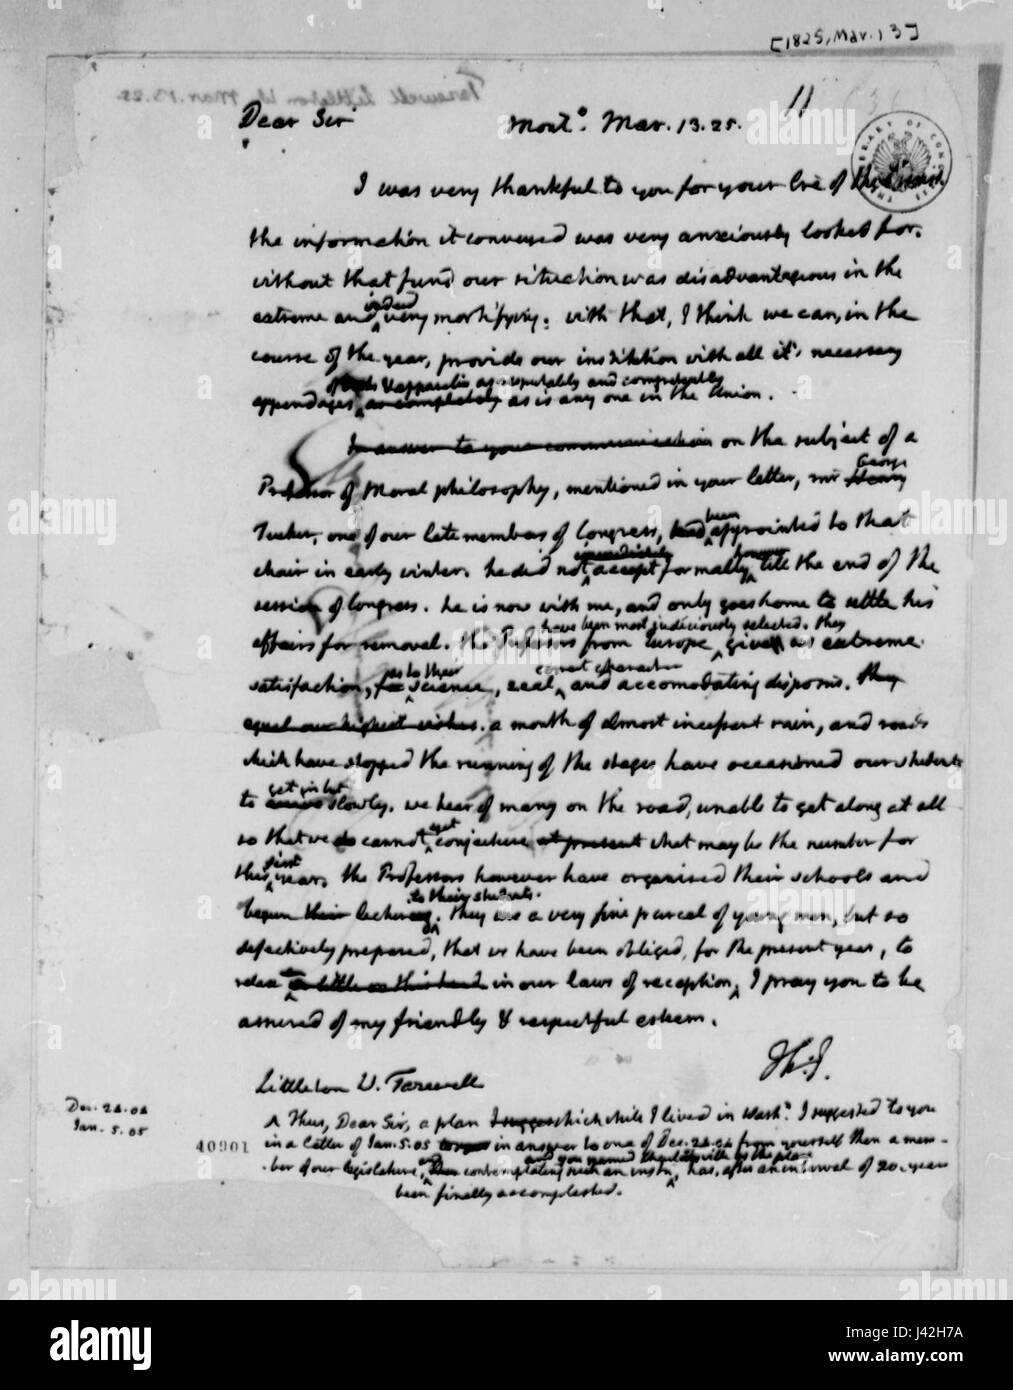 [1825, Mar. 13]
Tazewell Littleton W. Mar. 13. 25.
11
LIBRARY OF CONGRESS
Dear Sir Mont.o Mar. 13. 25.
I was very thankful to you for your lre of the
the information it conveyed was very anxiously looked for.
without that fund our situation was disadvantageous in the
indeed
extreme and very mortifying. with that, I think we can, in the
course of the year, provide our institution with all it's necessary
of & apparatus, as reputably and competently
appendages as completely as is any one in the Union.
In answer to your communication on the subject of a
George
Professor of Moral philosophy, mentioned in your letter, mr Henry
been
Tucker, one of our late members of Congress, had appointed to that
immediately however
chair in early winter. he did not accept formally till the end of the
session of Congress. he is now with me, and only goes home to settle his
have been most judiciously selected. they
affairs for removal. the Professors from Europe give us extreme
as to their correct character
satisfaction, for science, zeal, and accomodating disposns. they
equal our highest wishes. a month of almost incessant rain, and roads
which have stopped the running of the stages have occasioned our students
get in but
to arrive slowly. we hear of many on the road, unable to get along at all
yet
so that we do cannot conjecture at present what may be the number for
first
this year. the Professors however have organised their schools and
to their students.
begun their lectures. they are a very fine parcel of young men, but so
defectively prepared, that we have been obliged, for the present year, to
relax a little on this head in our laws of reception, I pray you to be
assured of my friendly & respectful esteem.
Th: J.
Littleton W. Tazewell
Dec. 24. 04
Jan. 5. 05
40901
^ Thus, Dear Sir, a plan I sugges which while I lived in Wash.n I suggested to you
in a letter of Jan. 5. 05 in answer to one of Dec. 24. 04 from yourself then a mem-
and you named Charlottesville as the place
ber of our legislature, and then contemplating such an instn, has, after an interval of 20. years
been finally accomplished.
alamy
alamy
Image ID: J42H7A
www.alamy.com